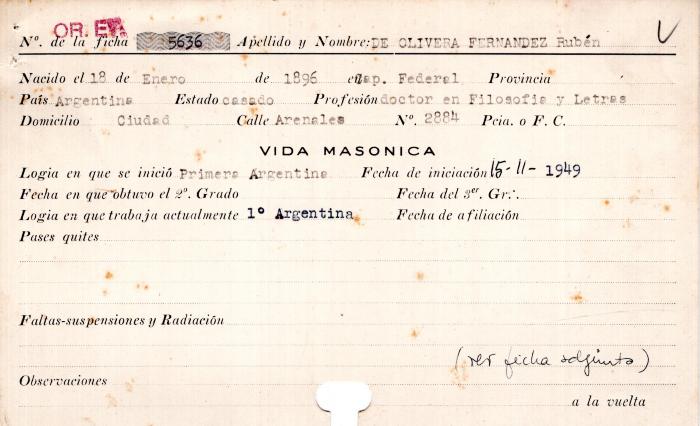 OR. ET.
Nº. de la ficha 5636 Apellido y Nombre: DE OLIVERA FERNANDEZ Rubén
Nacido el 18 de Enero de 1896 en Cap. Federal Provincia
País Argentina Estado casado Profesión doctor en Filosofia y Letras
Domicilio Ciudad Calle Arenales Nº. 2884 Pcia. o F. C.
VIDA MASONICA
Logia en que se inició Primera Argentina Fecha de iniciación 15-11-1949
Fecha en que obtuvo el 2º. Grado Fecha del 3er. Gr∴
Logia en que trabaja actualmente 1º Argentina Fecha de afiliación
Pases quites
Faltas-suspensiones y Radiación
(ver ficha adjunta)
Observaciones
a la vuelta